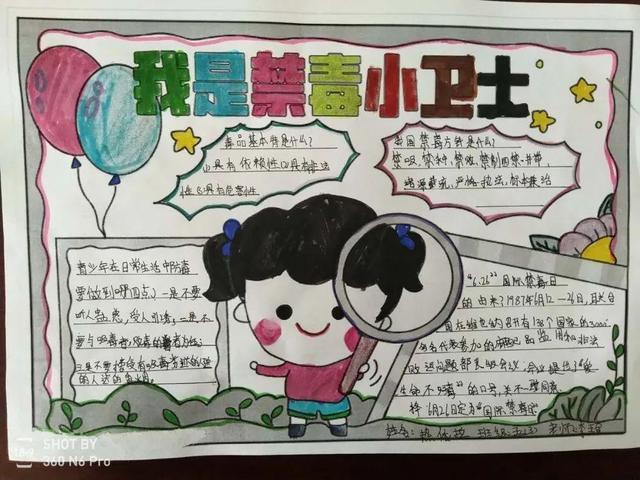 我是禁毒小卫士
毒品基本特是什么？
(1)具有依赖性(2)具有非法
性(3)具有危害性
我国禁毒方针是什么？
禁吸，禁种，禁贩，禁制四禁并举，
堵源截流，严格执法，标本兼治
青少年在日常生活中防毒
要做到哪四点？一是不要
听人
受人引诱，二是不
要与吸毒
三是不要
的人
"6.26"国际禁毒日
的由来？1987年6月12一26日，联合
国在维也纳召开有138个国家的3000
多名代表参加的
滥用和非法
贩运问题部长级会议
会议提出"爱
生命不吸毒"的口号，
将6月26日定为"国际禁毒日
姓名：
班级：
老师：
SHOT BY
360 N6 Pro